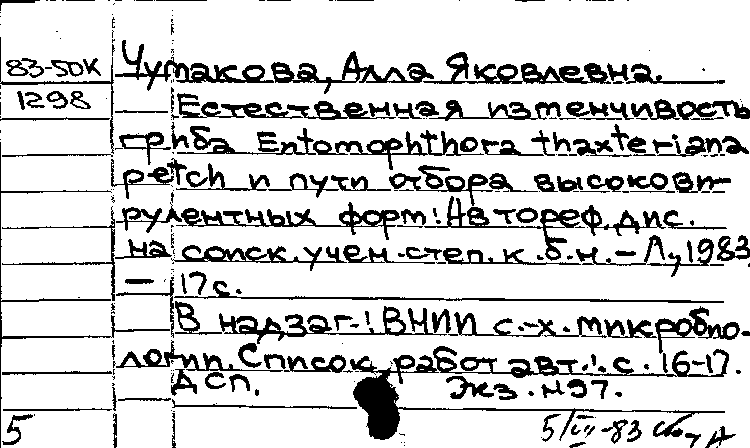 83-50К Чумакова, Алла Яковлевна.
1298 Естественная изменчивость
гриба Entomophthora thaxteriana
petch и пути отбора высокови-
рулентных форм: Автореф. дис.
на соиск. учен. степ. к. б. н. – Л., 1983
— 17 с.
В надзаг.: ВНИИ с.-х. микробио-
логии. Список работ авт.: с. 16-17.
ДСП. Экз. №97.
5 5/III-83